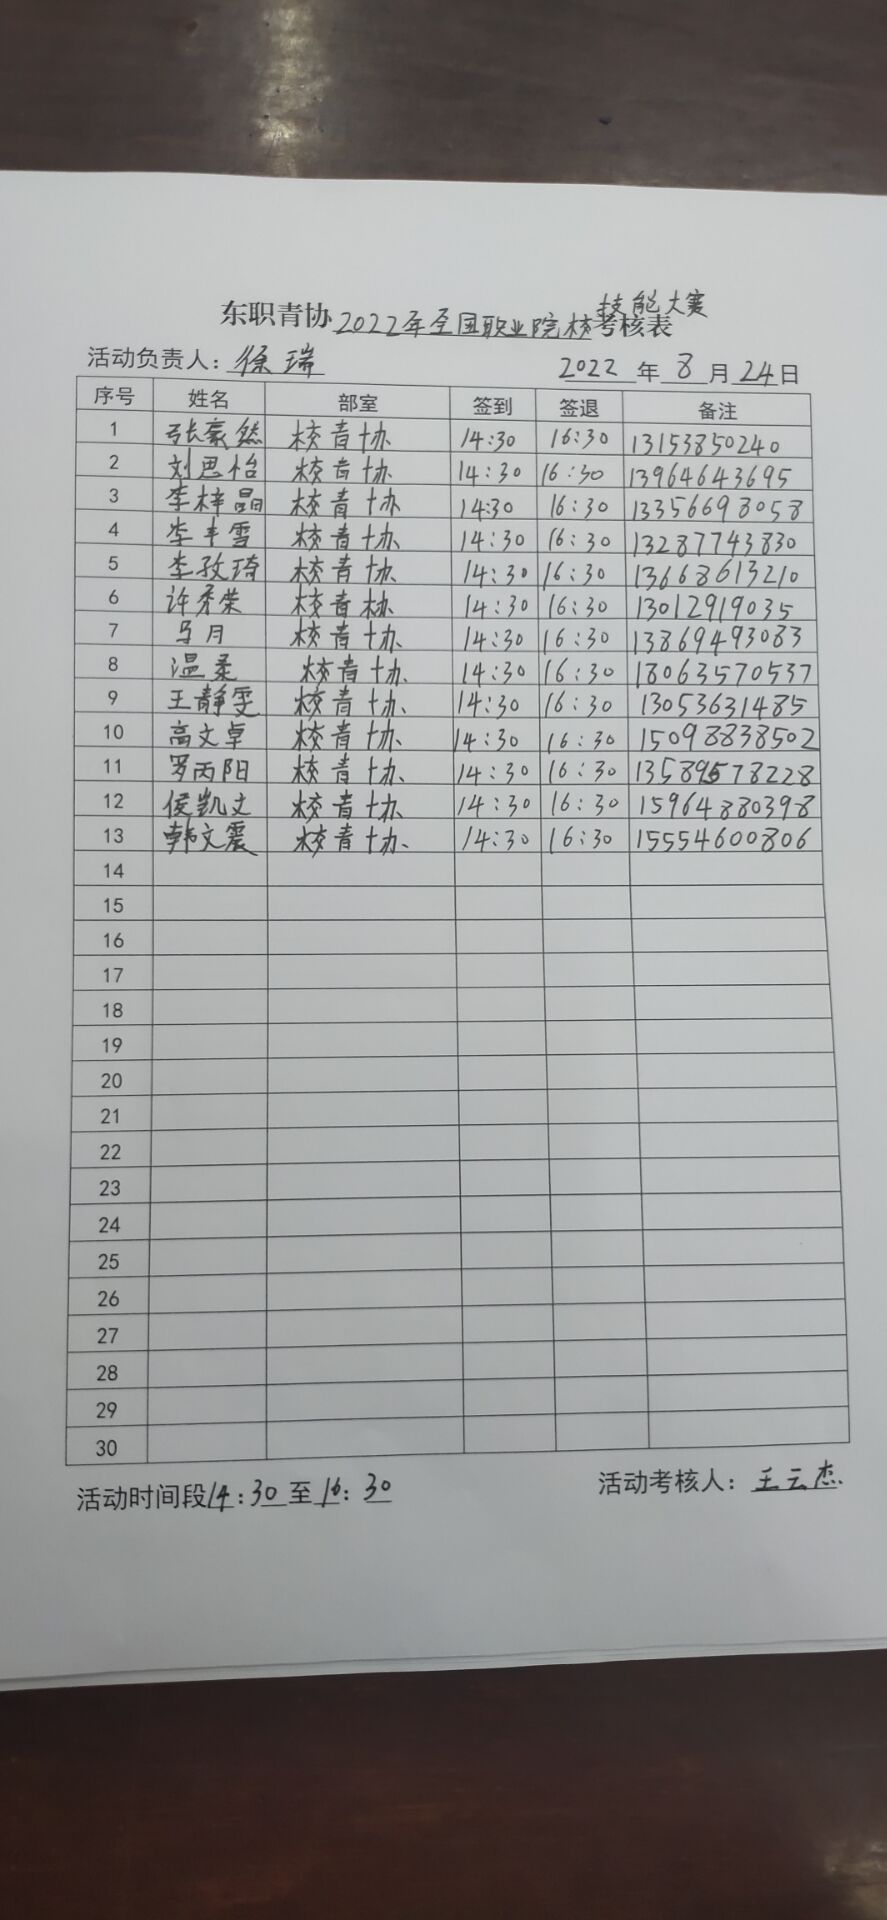 技能大赛
东职青协2022年全国职业院校考核表
活动负责人：徐瑞 2022年8月24日
序号 姓名 部室 签到 签退 备注
1 张豪然 校青协 14:30 16:30 13153850240
2 刘思怡 校青协 14:30 16:30 13964643695
3 李梓晶 校青协 14:30 16:30 13356698058
4 李丰雪 校青协 14:30 16:30 13287743830
5 李孜琦 校青协 14:30 16:30 13668613210
6 许秀荣 校青协 14:30 16:30 13012919035
7 马月 校青协 14:30 16:30 13869493083
8 温柔 校青协 14:30 16:30 18063570537
9 王静雯 校青协 14:30 16:30 13053631485
10 高文卓 校青协 14:30 16:30 15098838502
11 罗丙阳 校青协 14:30 16:30 13589578228
12 侯凯文 校青协 14:30 16:30 15964880398
13 韩文震 校青协 14:30 16:30 15554600806
14
15
16
17
18
19
20
21
22
23
24
25
26
27
28
29
30
活动时间段14:30至16:30 活动考核人：王云杰